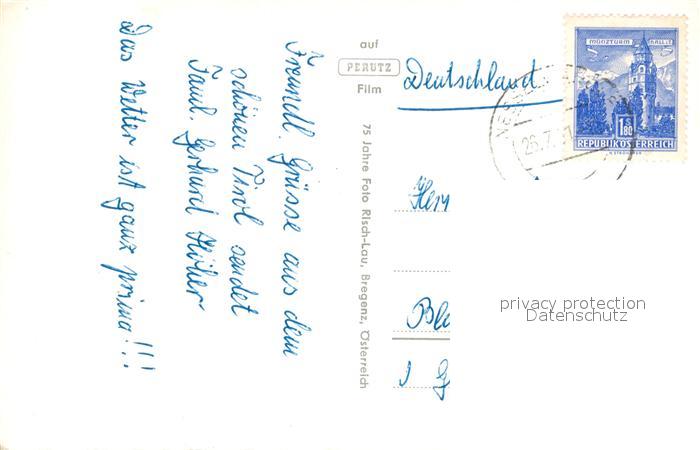 Freundl. Grüsse aus dem
schönen Tirol sendet
Fam. Gerhard
Das Wetter ist ganz prima!!!
auf
PERUTZ
Film
75 Jahre Foto Risch-Lau, Bregenz, Österreich
Deutschland
MÜNZTURM HALL i.T.
S 1.80
REPUBLIK ÖSTERREICH
26.7.
Herr
Ble
1 G
privacy protection
Datenschutz